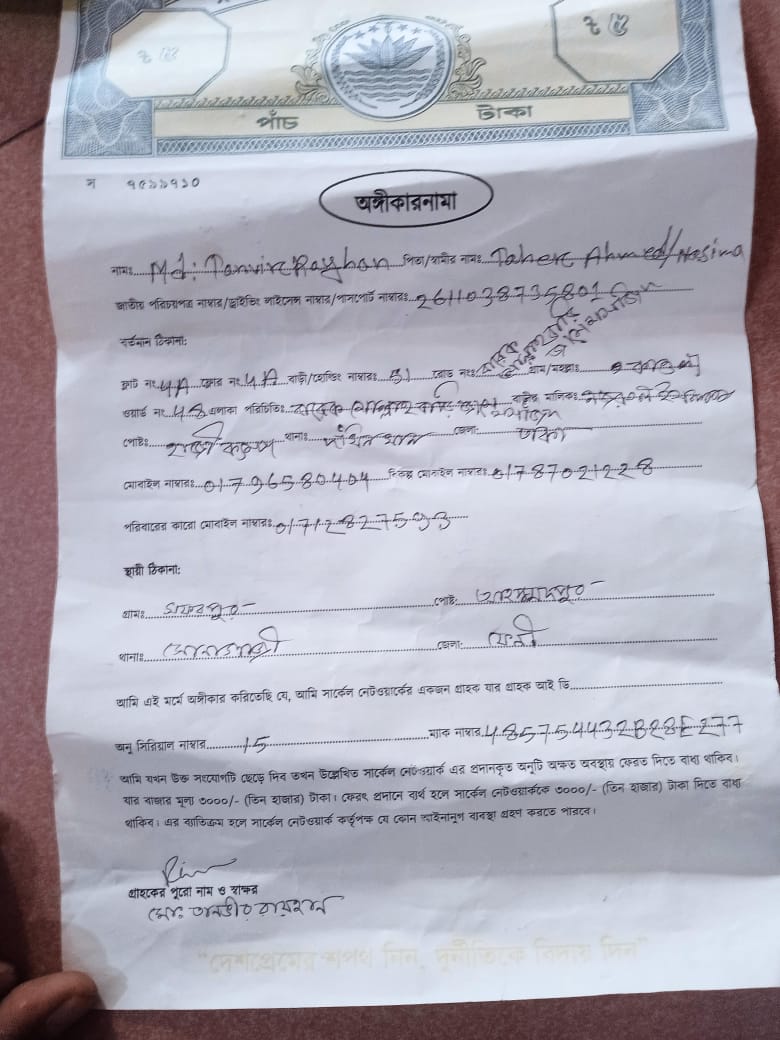 পাঁচ টাকা
ন ৭৫১১৭১০
অঙ্গীকারনামা
নামঃ Md: Tanvir Rayhan পিতা/স্বামীর নামঃ Taher Ahmed/Hasima
জাতীয় পরিচয়পত্র নাম্বার/ড্রাইভিং লাইসেন্স নাম্বার/পাসপোর্ট নাম্বারঃ 2611038735801
বর্তমান ঠিকানা:
ফ্লাট নং 4A ফ্লোর নং 4A বাড়ী/হোল্ডিং নাম্বারঃ 51 রোড নংঃ গ্রাম/মহল্লাঃ
ওয়ার্ড নং 48 এলাকা পরিচিতিঃ বাড়ির মালিকঃ
পোষ্টঃ থানাঃ জেলা: ঢাকা
মোবাইল নাম্বারঃ 01796580404 বিকল্প মোবাইল নাম্বারঃ 01787021228
পরিবারের কারো মোবাইল নাম্বারঃ 01712827593
স্থায়ী ঠিকানা:
গ্রামঃ পোষ্ট: আহম্মদপুর
থানাঃ সোনাগাজী জেলা: ফেনী
আমি এই মর্মে অঙ্গীকার করিতেছি যে, আমি সার্কেল নেটওয়ার্কের একজন গ্রাহক যার গ্রাহক আই ডি
অনু সিরিয়াল নাম্বার 15 ম্যাক নাম্বার 485754432B28E277
আমি যখন উক্ত সংযোগটি ছেড়ে দিব তখন উল্লেখিত সার্কেল নেটওয়ার্ক এর প্রদানকৃত অনুটি অক্ষত অবস্থায় ফেরত দিতে বাধ্য থাকিব।
যার বাজার মূল্য ৩০০০/- (তিন হাজার) টাকা। ফেরৎ প্রদানে ব্যর্থ হলে সার্কেল নেটওয়ার্ককে ৩০০০/- (তিন হাজার) টাকা দিতে বাধ্য
থাকিব। এর ব্যতিক্রম হলে সার্কেল নেটওয়ার্ক কর্তৃপক্ষ যে কোন আইনানুগ ব্যবস্থা গ্রহণ করতে পারবে।
গ্রাহকের পুরো নাম ও স্বাক্ষর
মোঃ তানভীর রায়হান
"দেশপ্রেমের শপথ নিন, দুর্নীতিকে বিদায় দিন"